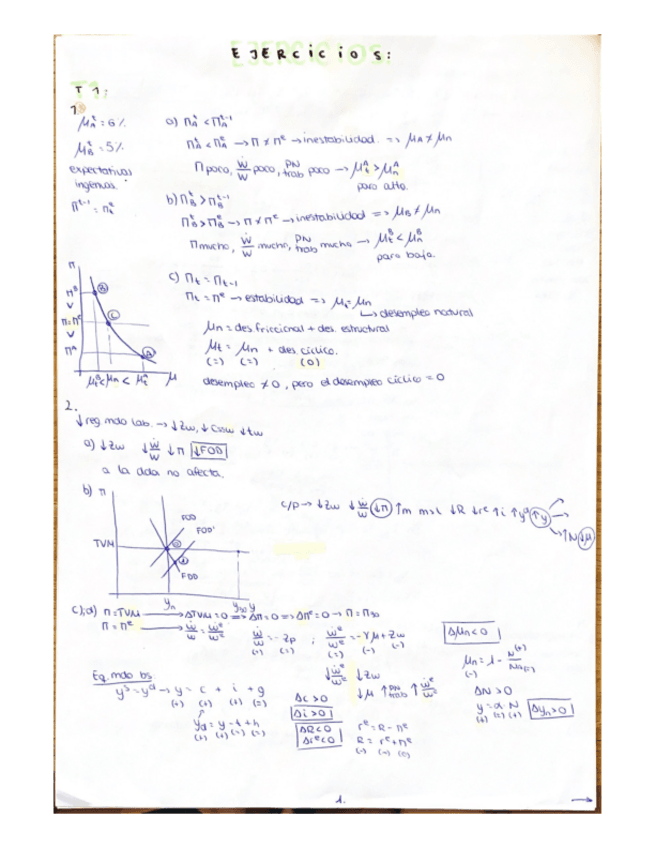 EJERCICIOS:
T1:
1)
μ_A^t = 6%
μ_B^t = 5%
expectativas
ingenuas.
Π^{t-1} = Π_t^e
a) Π_A^t < Π_A^{t-1}
Π_A^t < Π_A^e → Π ≠ Π^e → inestabilidad. => μ_A ≠ μ_n
Π poco, Ẇ/W poco, PN trab poco → μ_t^A > μ_n^A
paro alto.
b) Π_B^t > Π_B^{t-1}
Π_B^t > Π_B^e → Π ≠ Π^e → inestabilidad => μ_B ≠ μ_n
Π mucho, Ẇ/W mucho, PN trab mucho → μ_t^B < μ_n^B
paro bajo.
c) Π_t = Π_{t-1}
Π_t = Π^e → estabilidad => μ_t = μ_n
↳ desempleo natural
μ_n = des friccional + des. estructural
μ_t = μ_n + des. cíclico.
(=) (=) (0)
desempleo ≠ 0, pero el desempleo cíclico = 0
Π
Π^B
∨
Π = Π^e
∨
Π^A
B
C
A
μ_t^B < μ_n < μ_t^A μ
2.
↓ reg mdo lab. → ↓Zw, ↓ cssw ↓tw
a) ↓Zw ↓Ẇ/W ↓Π ↓FOD
a la dda no afecta.
b) Π
FOD
FOD'
FDD
TVM
y_n
y
c/p → ↓Zw ↓Ẇ/W ↓Π ↑m m>L ↓R ↓r^e ↑i ↑y^d ↑y
→ ↑N ↓μ
c);d) Π = TVM → ΔTVM = 0 => ΔΠ = 0 => ΔΠ^e = 0 → Π = Π_{90}
Π = Π^e → Ẇ/W = Ẇ^e/W^e
Ẇ/W = -Zp ; Ẇ^e/W^e = -γμ + Zw
(-) (-) (=) (-) (-)
Δμ_n < 0
↓Ẇ^e/W^e ↓Zw
↓μ ↑PN trab ↑Ẇ^e/W^e
μ_n = 1 -
(-)
ΔN > 0
y = a · N
(+) (=) (+)
Δy_n > 0
Eq. mdo bs:
y^s = y^d → y = c + i + g
(+) (+) (+) (=)
y_d = y - t + h
(+) (+) (=) (=)
Δc > 0
Δi > 0
ΔR < 0
Δr^e < 0
r^e = R - Π^e
R = r^e + Π^e
(-) (-) (0)
1.
→